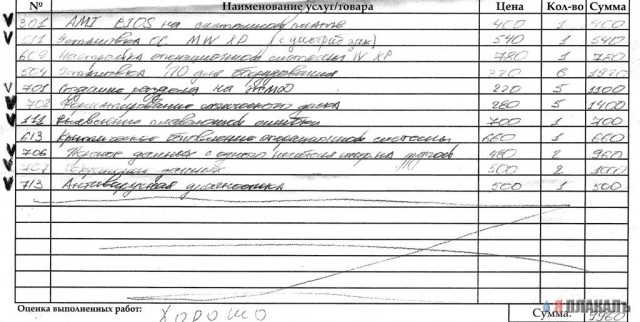 № Наименование услуг/товара Цена Кол-во Сумма
301 AMI BIOS на системной плате 400 1 400
Установка ОС MW XP 540 1 540
609 Настройка операционной системы W XP 780 1 780
504 Установка ПО для оборудования 220 6 1320
701 Создание раздела на 220 5 1100
702 Форматирование логического диска 280 5 1400
111 Выявление плавающей ошибки 700 1 700
613 Критическое обновление операционной системы 660 1 660
706 Перенос данных с одного носителя на другой 480 2 960
данных 500 2 1000
713 Антивирусная диагностика 500 1 500
Оценка выполненных работ: Хорошо Сумма: 9960
Я ПЛАКАЛЪ